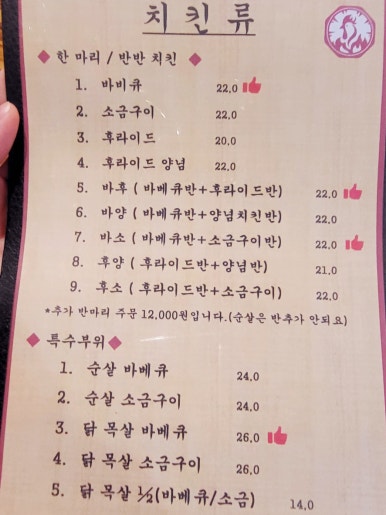 치킨류
◆ 한 마리 / 반반 치킨 ◆
1. 바비큐 22.0
2. 소금구이 22.0
3. 후라이드 20.0
4. 후라이드 양념 22.0
5. 바후 ( 바베큐반+후라이드반) 22.0
6. 바양 ( 바베큐반+양념치킨반) 22.0
7. 바소 ( 바베큐반+소금구이반) 22.0
8. 후양 ( 후라이드반+양념반) 21.0
9. 후소 ( 후라이드반+소금구이) 22.0
*추가 반마리 주문 12,000원입니다.(순살은 반추가 안되요)
◆ 특수부위 ◆
1. 순살 바베큐 24.0
2. 순살 소금구이 24.0
3. 닭 목살 바베큐 26.0
4. 닭 목살 소금구이 26.0
5. 닭 목살 ½(바베큐/소금) 14.0